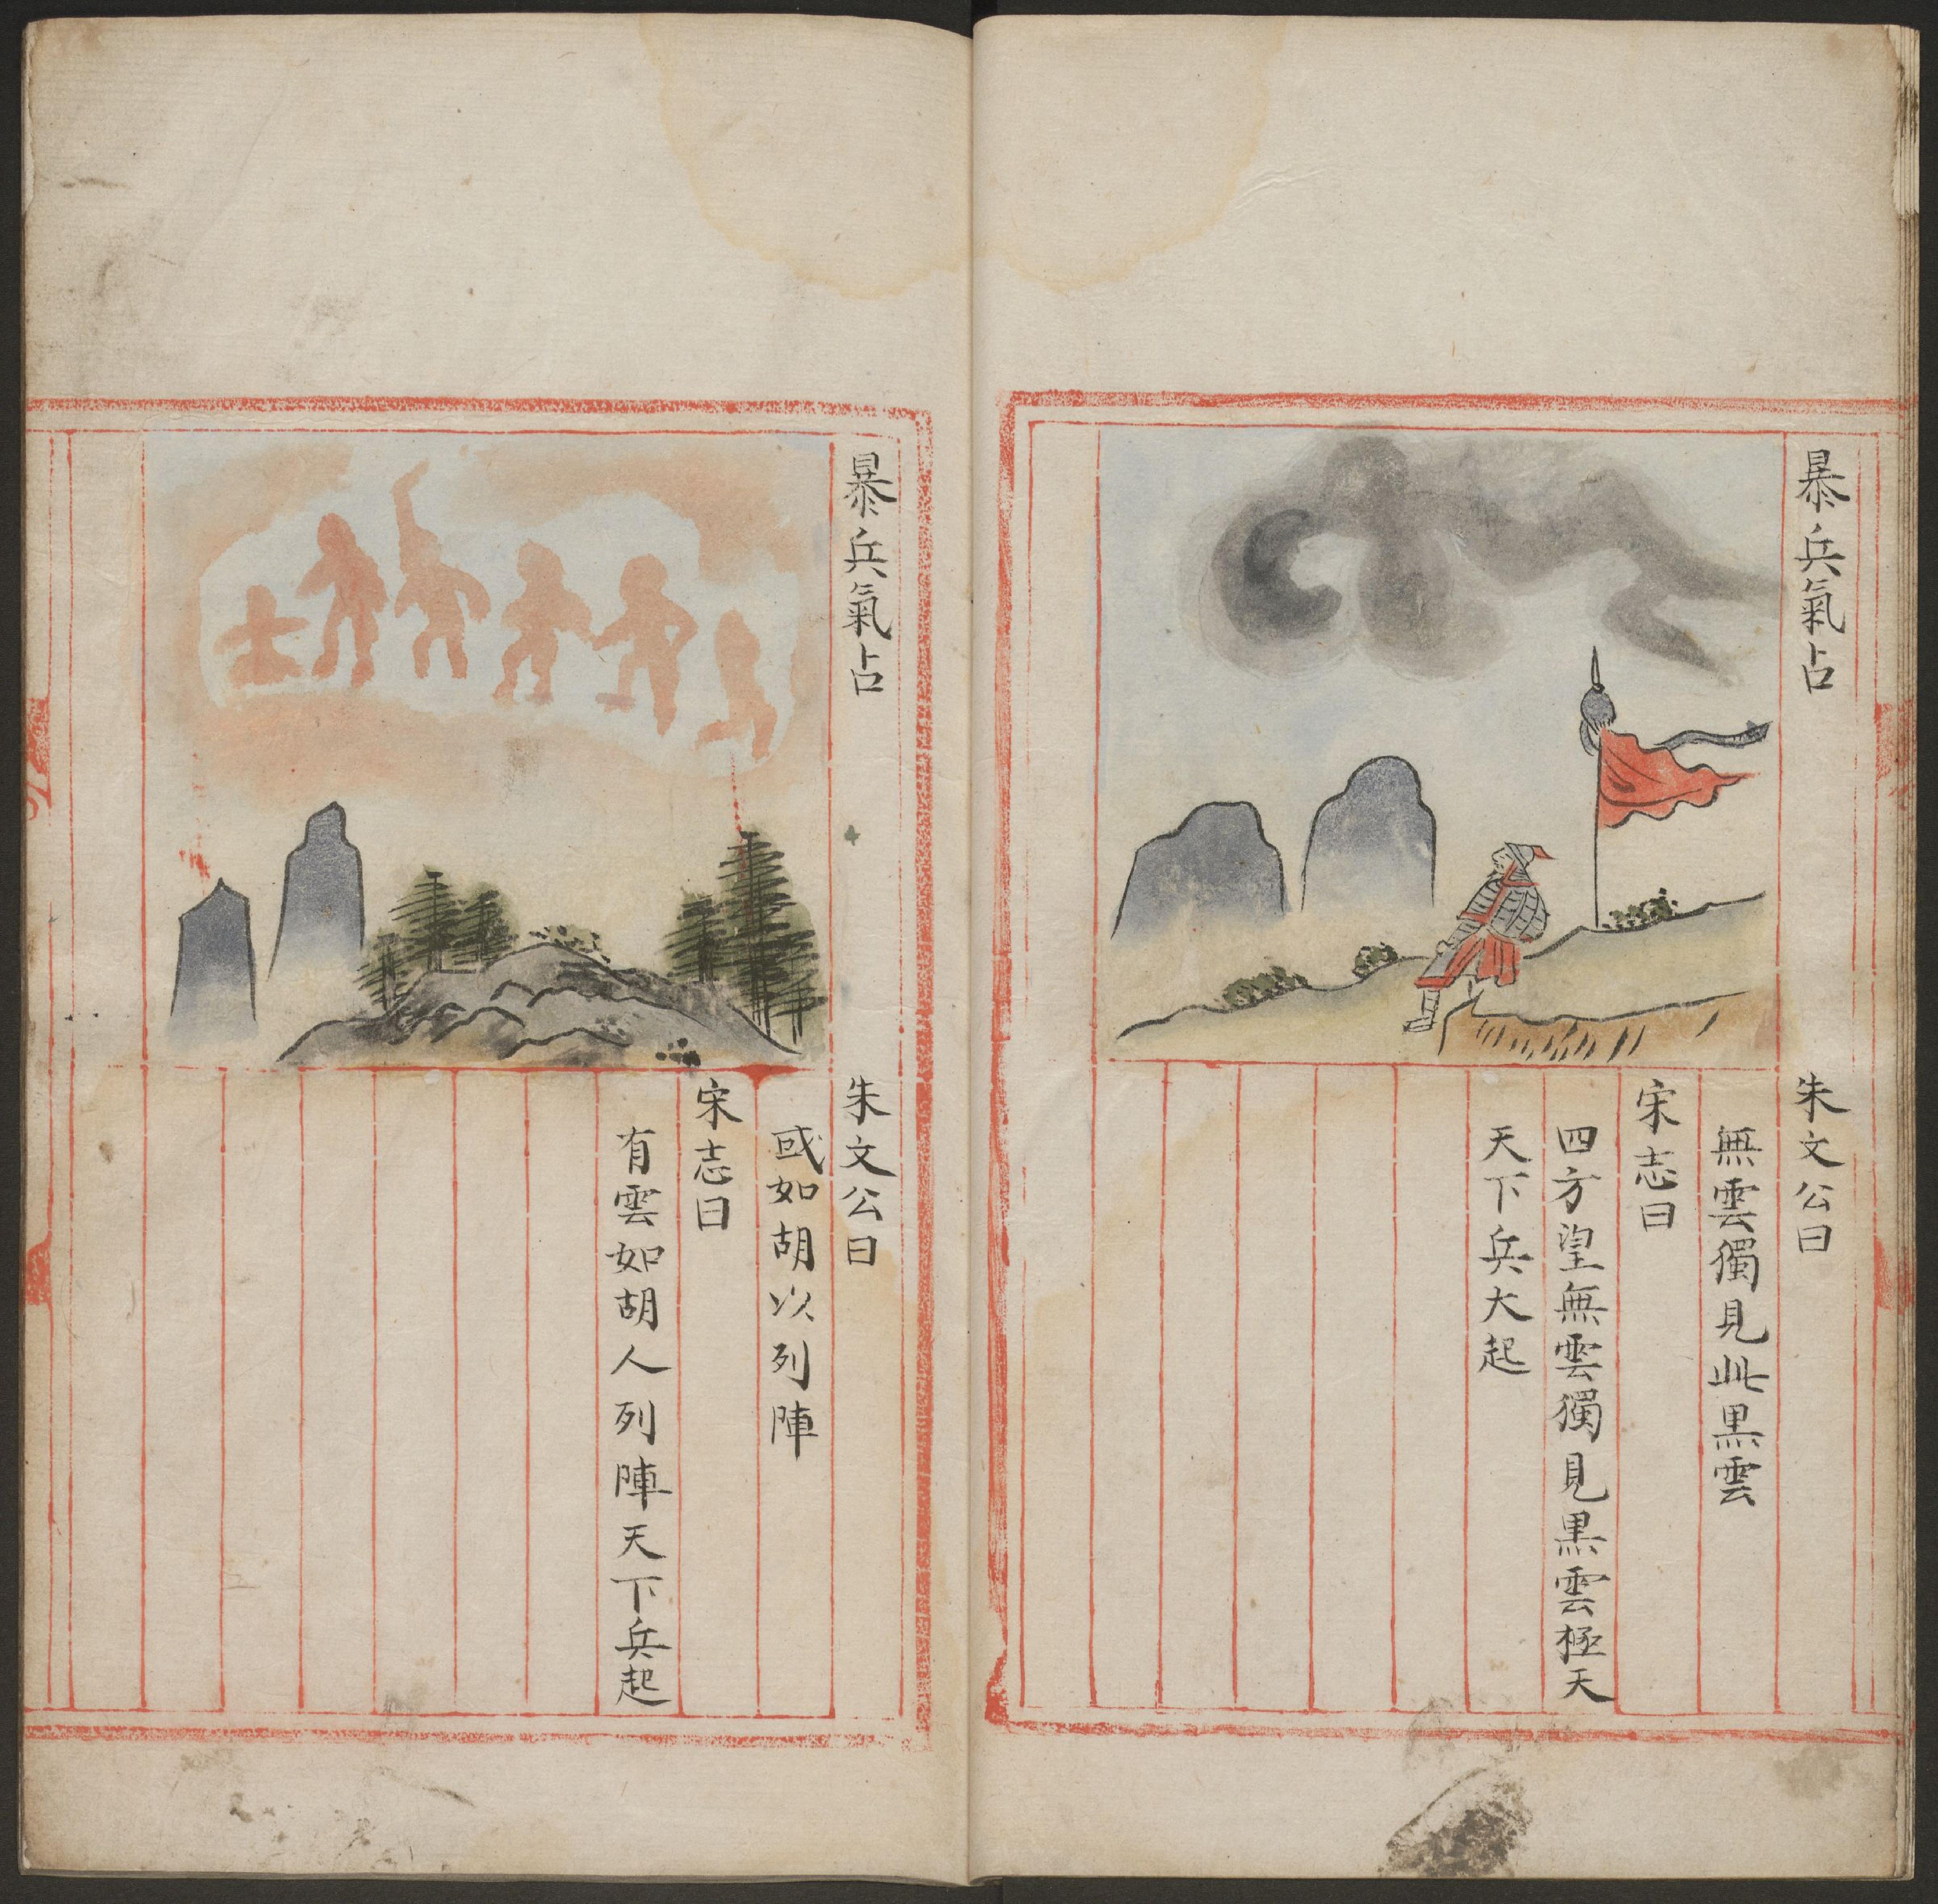 暴兵氣占
朱文公曰
無雲獨見此黒雲
宋志曰
四方望無雲獨見黒雲極天
天下兵大起
暴兵氣占
朱文公曰
或如胡以列陣
宋志曰
有雲如胡人列陣天下兵起